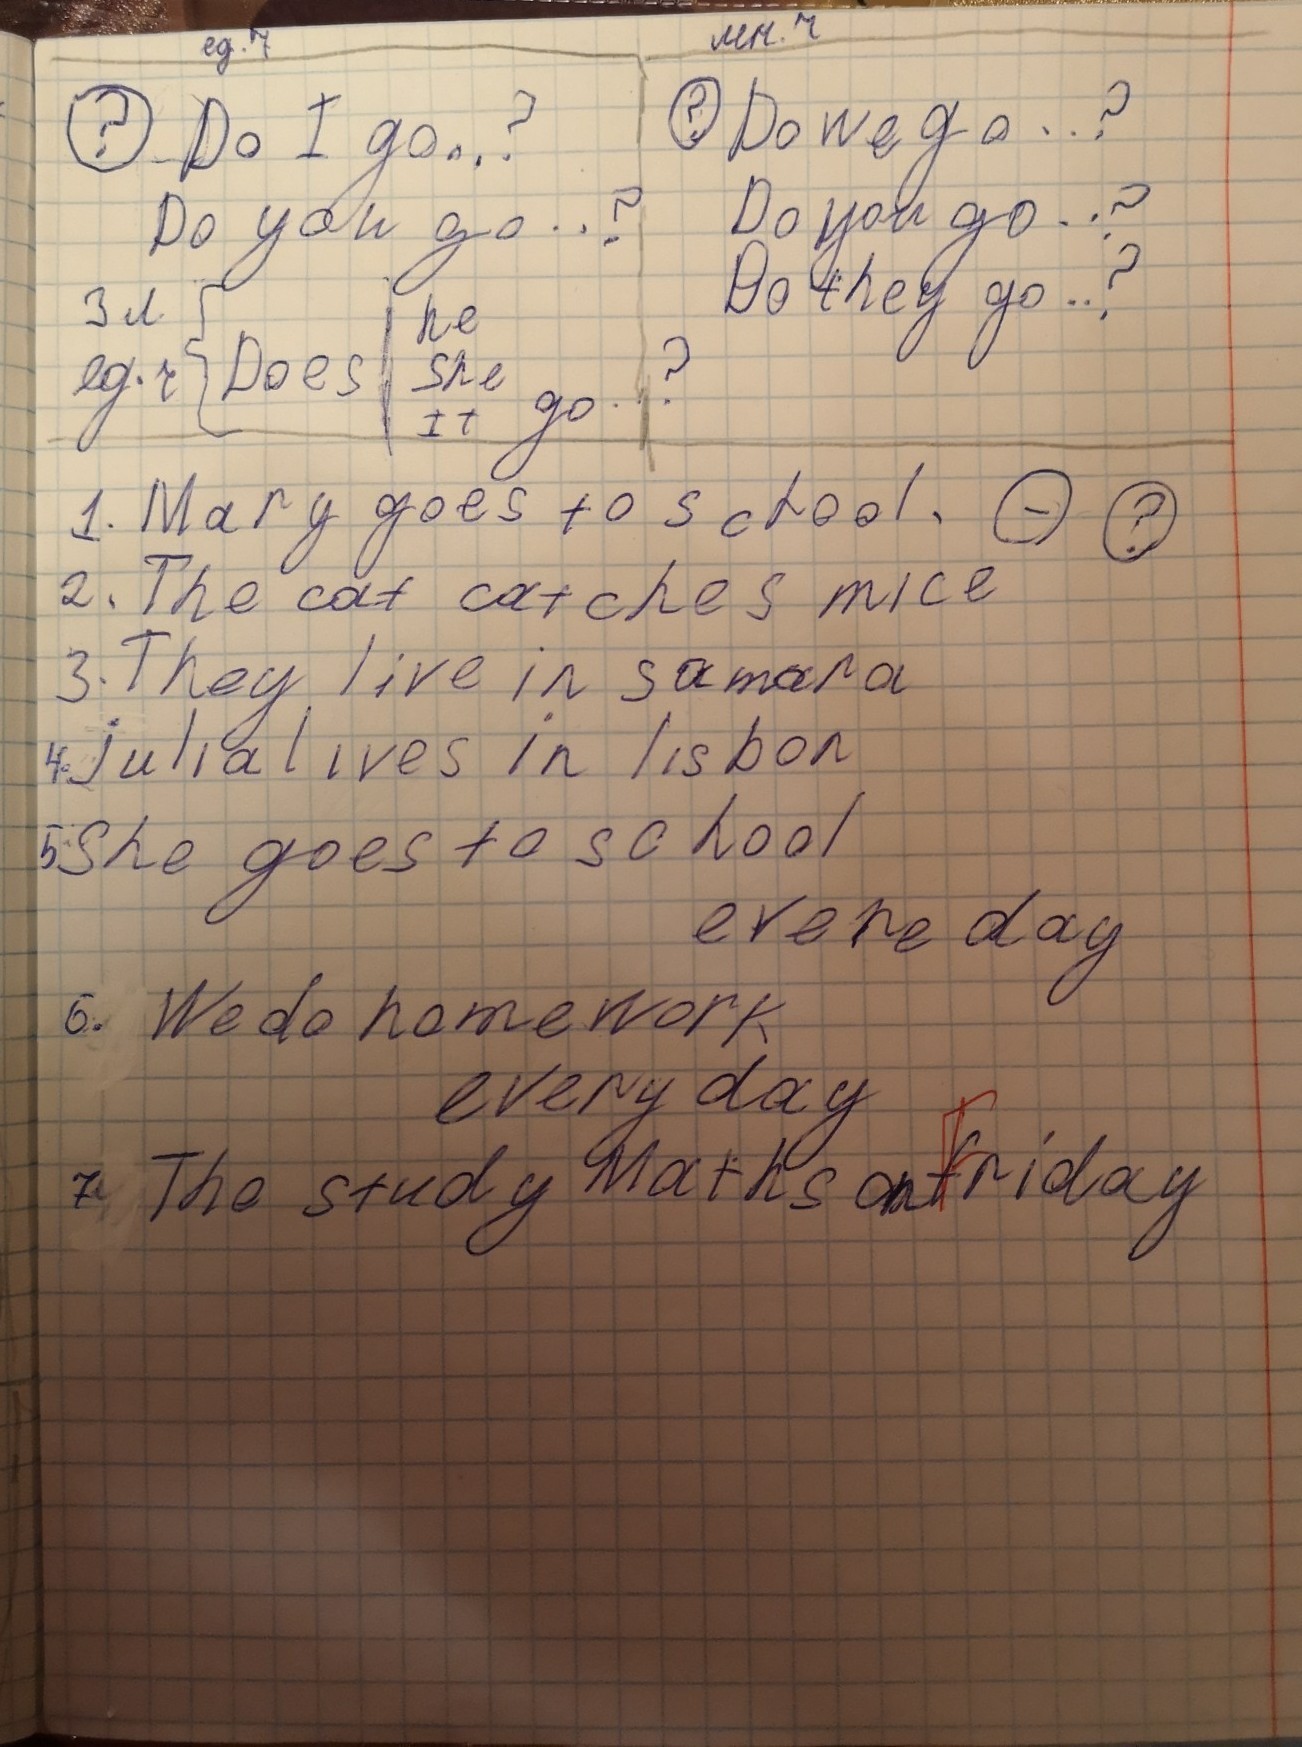 ед.ч
мн.ч
? Do I go...?
Do you go...?
3 л.
ед.ч Does he
she
It go..?
? Do we go...?
Do you go...?
Do they go...?
1. Mary goes to school. - ?
2. The cat catches mice
3. They live in samara
4. julia lives in lisbon
5. She goes to school
evere day
6. We do homework
every day
7. The study Maths on Friday